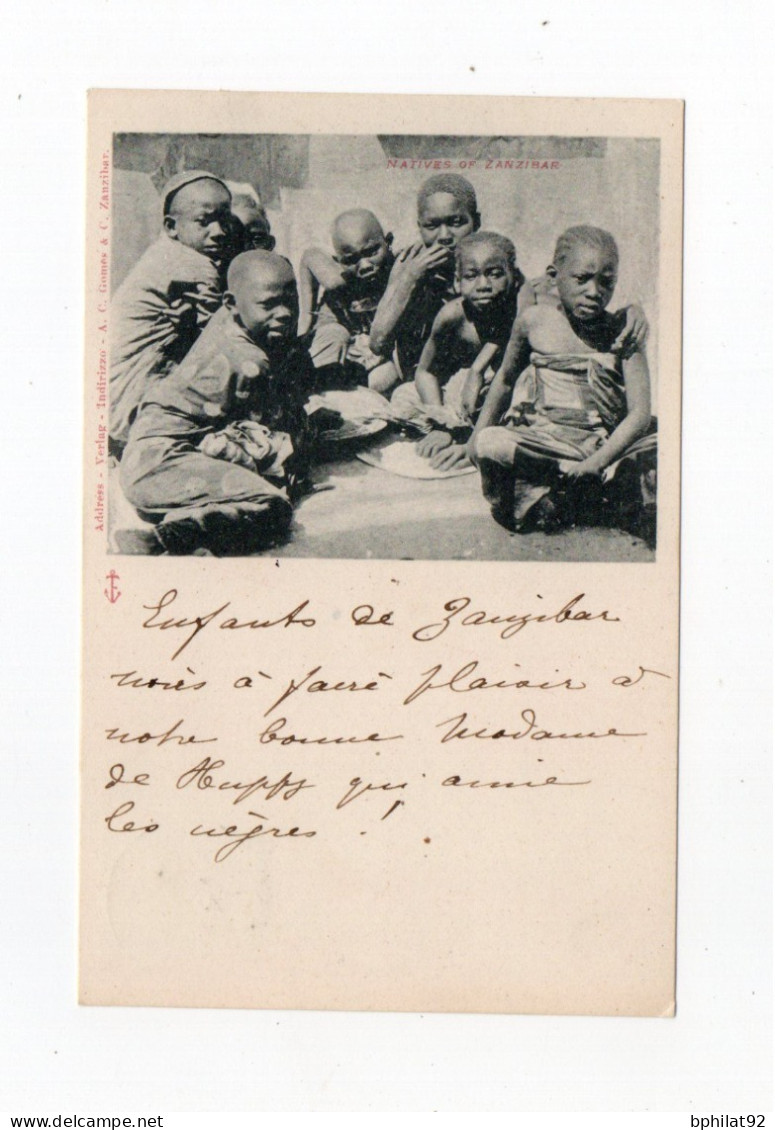 NATIVES OF ZANZIBAR
Address - Verlag - Indirizzo - A. C. Gomes & C. Zanzibar.
Enfants de Zanzibar
noirs à faire plaisir à
notre bonne Madame
de qui aime
les nègres !
bphilat92